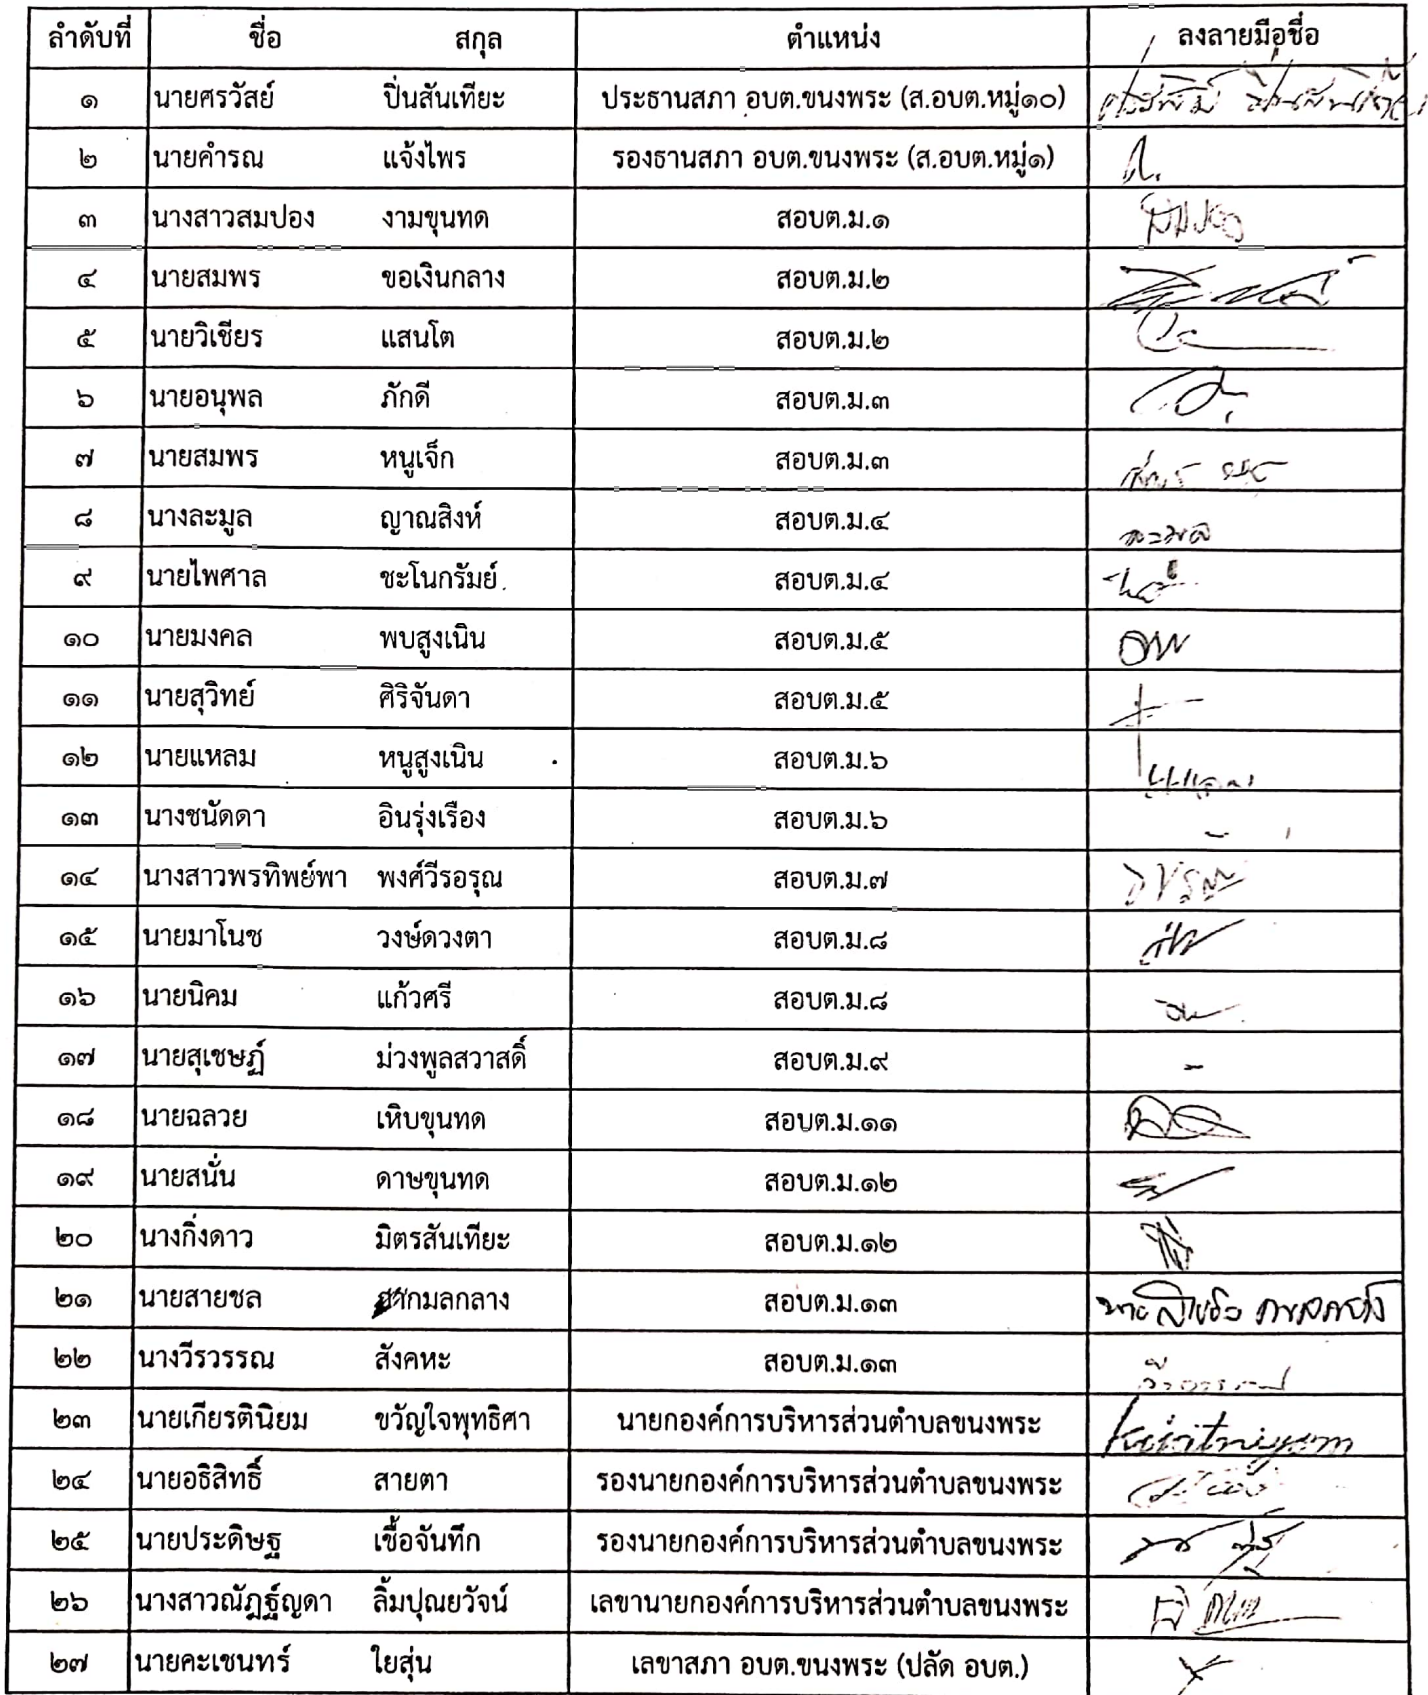 ลำดับที่ ชื่อ สกุล ตำแหน่ง ลงลายมือชื่อ
๑ นายศรวัสย์ ปิ่นสันเทียะ ประธานสภา อบต.ขนงพระ (ส.อบต.หมู่๑๐)
๒ นายคำรณ แจ้งไพร รองธานสภา อบต.ขนงพระ (ส.อบต.หมู่๑)
๓ นางสาวสมปอง งามขุนทด สอบต.ม.๑ สมปอง
๔ นายสมพร ขอเงินกลาง สอบต.ม.๒
๕ นายวิเชียร แสนโต สอบต.ม.๒
๖ นายอนุพล ภักดี สอบต.ม.๓
๗ นายสมพร หนูเจ็ก สอบต.ม.๓
๘ นางละมูล ญาณสิงห์ สอบต.ม.๔
๙ นายไพศาล ชะโนกรัมย์ สอบต.ม.๔
๑๐ นายมงคล พบสูงเนิน สอบต.ม.๕
๑๑ นายสุวิทย์ ศิริจันดา สอบต.ม.๕
๑๒ นายแหลม หนูสูงเนิน สอบต.ม.๖
๑๓ นางชนัดดา อินรุ่งเรือง สอบต.ม.๖
๑๔ นางสาวพรทิพย์พา พงศ์วีรอรุณ สอบต.ม.๗
๑๕ นายมาโนช วงษ์ดวงตา สอบต.ม.๘
๑๖ นายนิคม แก้วศรี สอบต.ม.๘
๑๗ นายสุเชษฏ์ ม่วงพูลสวาสดิ์ สอบต.ม.๙ -
๑๘ นายฉลวย เหิบขุนทด สอบต.ม.๑๑
๑๙ นายสนั่น ดาษขุนทด สอบต.ม.๑๒
๒๐ นางกิ่งดาว มิตรสันเทียะ สอบต.ม.๑๒
๒๑ นายสายชล กมลกลาง สอบต.ม.๑๓
๒๒ นางวีรวรรณ สังคหะ สอบต.ม.๑๓ วีรวรรณ
๒๓ นายเกียรตินิยม ขวัญใจพุทธิศา นายกองค์การบริหารส่วนตำบลขนงพระ
๒๔ นายอธิสิทธิ์ สายตา รองนายกองค์การบริหารส่วนตำบลขนงพระ
๒๕ นายประดิษฐ เชื้อจันทึก รองนายกองค์การบริหารส่วนตำบลขนงพระ
๒๖ นางสาวณัฏฐ์ญดา ลิ้มปุณยวัจน์ เลขานายกองค์การบริหารส่วนตำบลขนงพระ
๒๗ นายคะเชนทร์ ใยสุ่น เลขาสภา อบต.ขนงพระ (ปลัด อบต.)